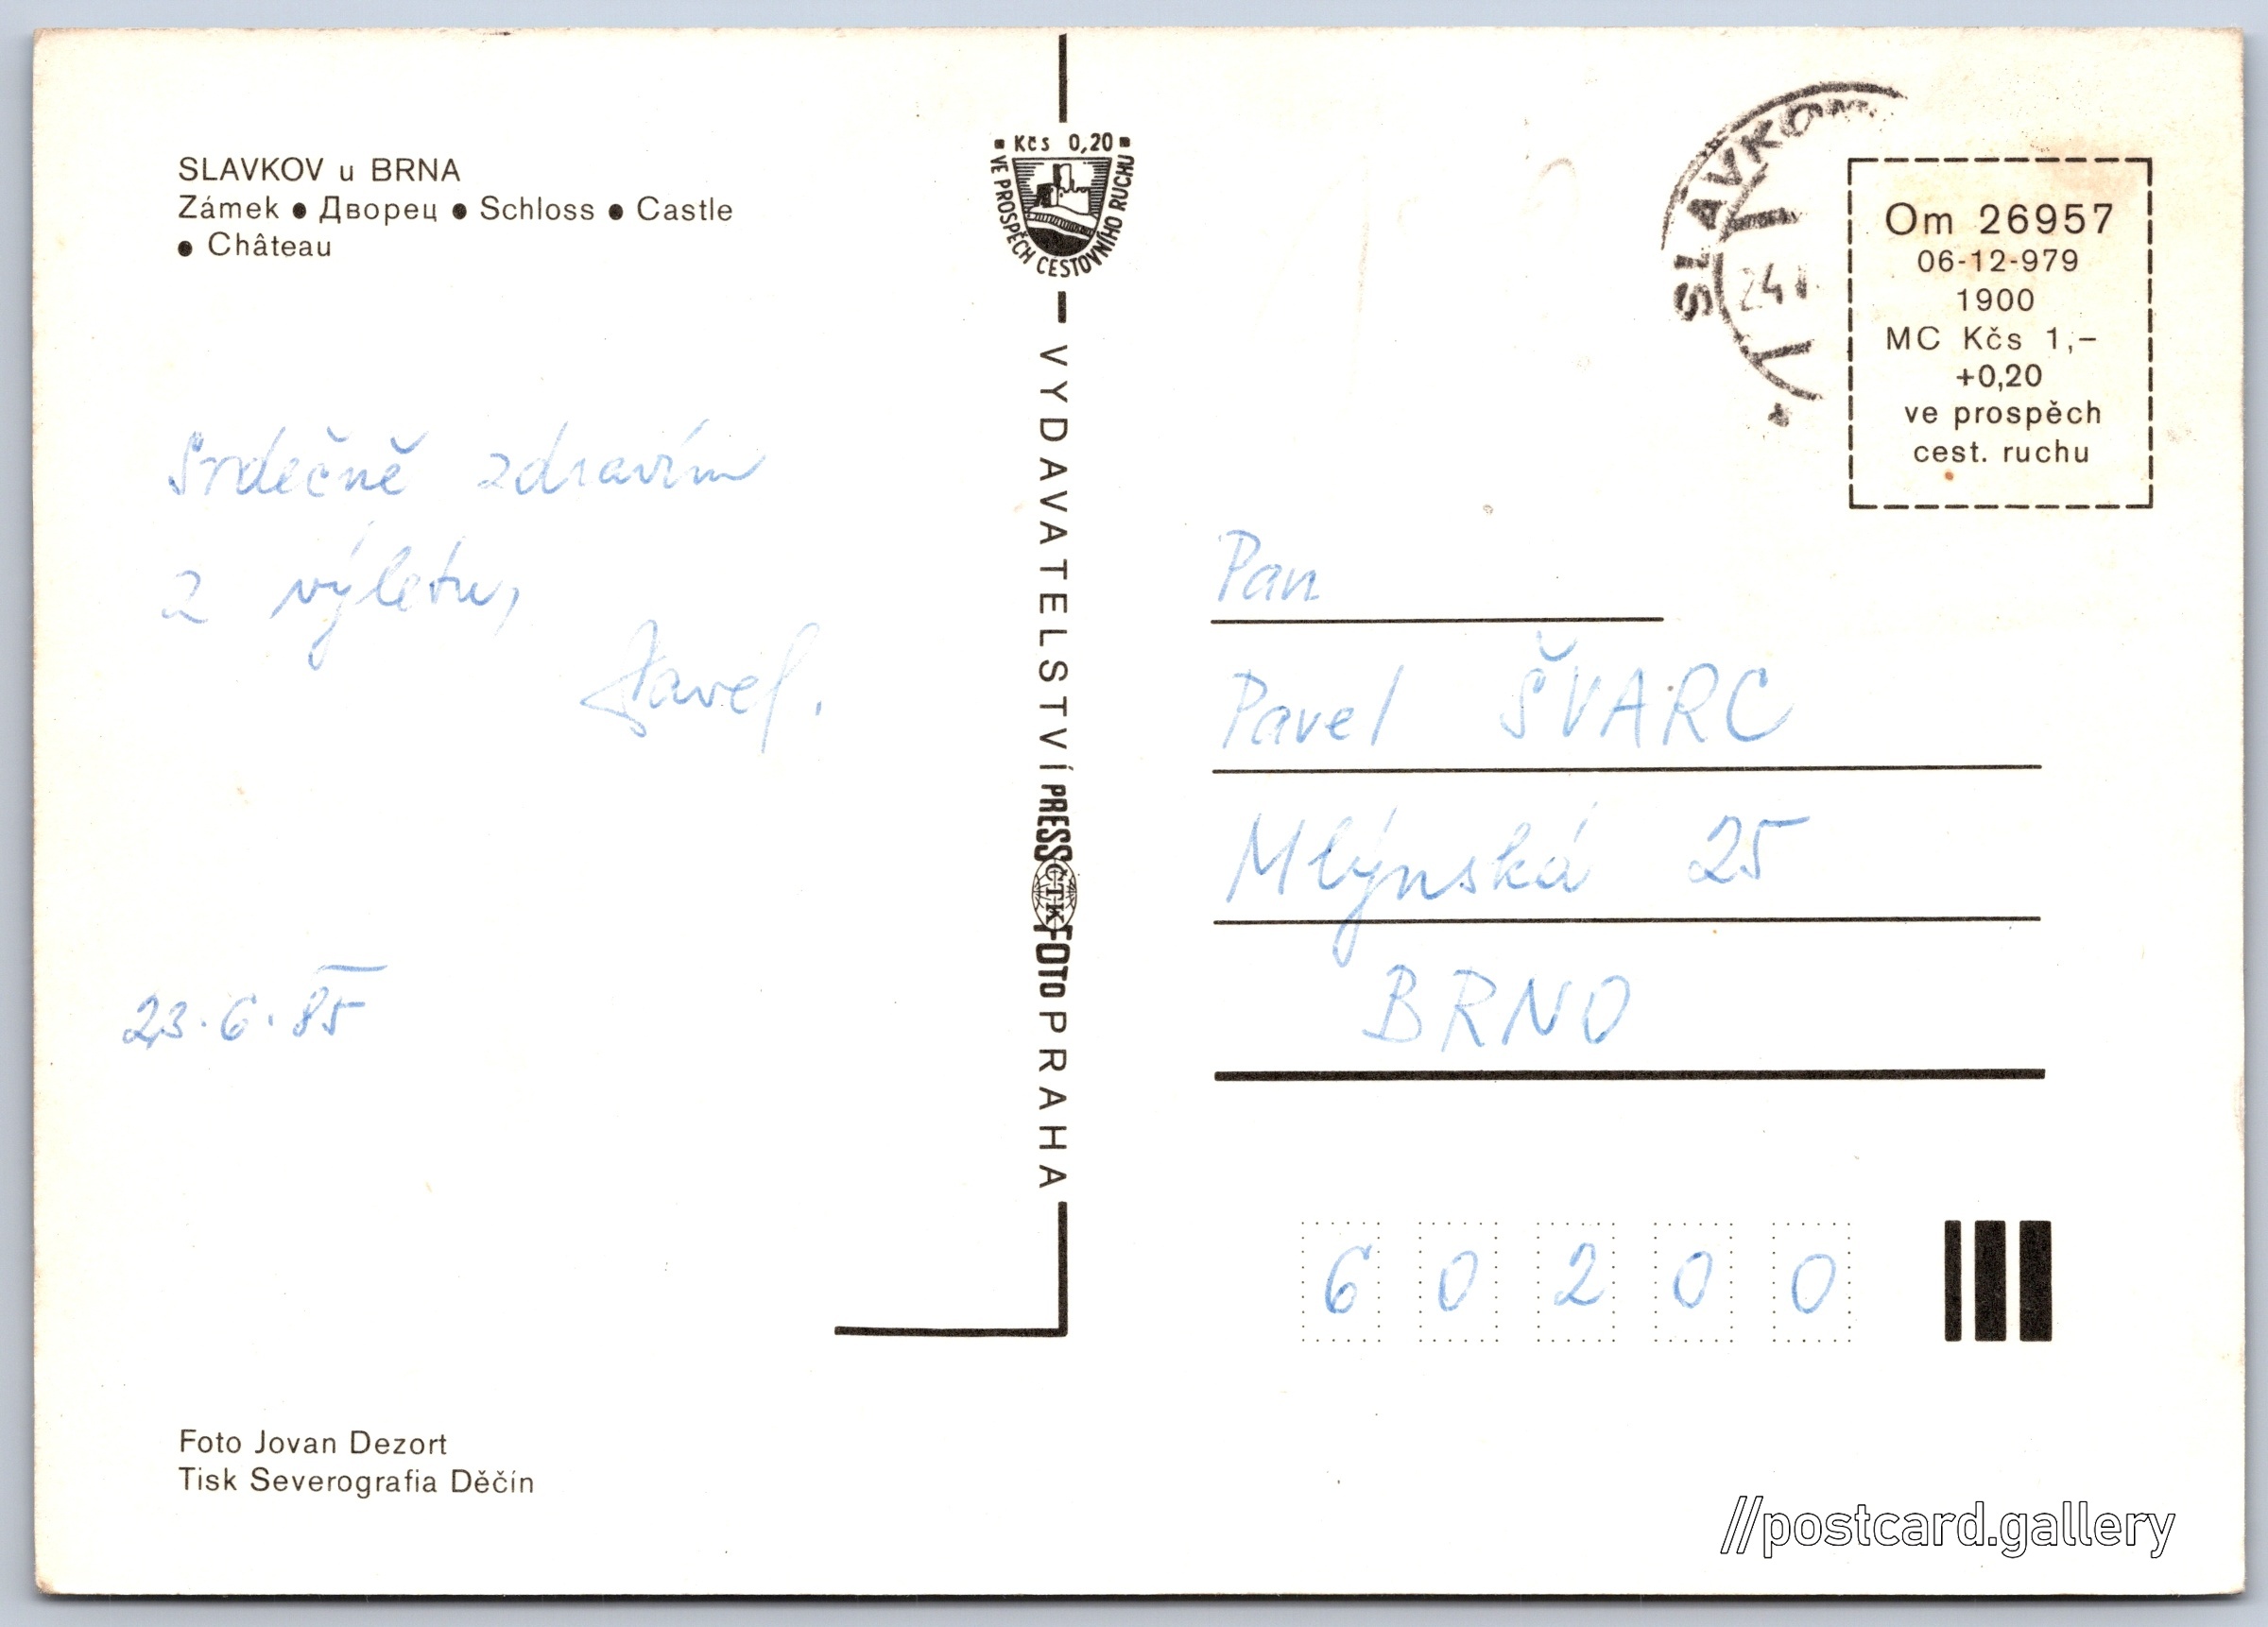 SLAVKOV u BRNA
Zámek ● Дворец ● Schloss ● Castle
● Château
Srdečně zdravím
z výletu,
Pavel.
23. 6. 85
Foto Jovan Dezort
Tisk Severografia Děčín
Kčs 0,20
VE PROSPĚCH CESTOVNÍHO RUCHU
VYDAVATELSTVÍ PRESSFOTO PRAHA
ČTK
SLAVKOV
24
Om 26957
06-12-979
1900
MC Kčs 1,–
+0,20
ve prospěch
cest. ruchu
Pan
Pavel ŠVARC
Mlýnská 25
BRNO
60200
//postcard.gallery